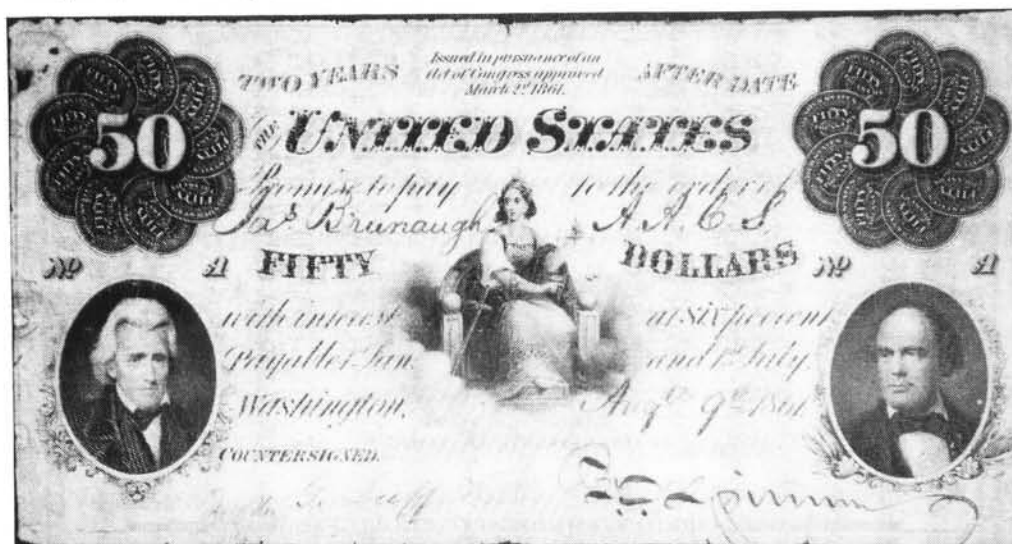 50 50
TWO YEARS Issued in pursuance of an AFTER DATE
Act of Congress approved
March 2d. 1861.
THE UNITED STATES
Promise to pay to the order of
Jas. Brunaugh A. A. C. S.
FIFTY DOLLARS
No A No A
with interest at SIX per cent
Payable 1st Jan. and 1st July.
Washington, Augt. 9th 1861
COUNTERSIGNED.